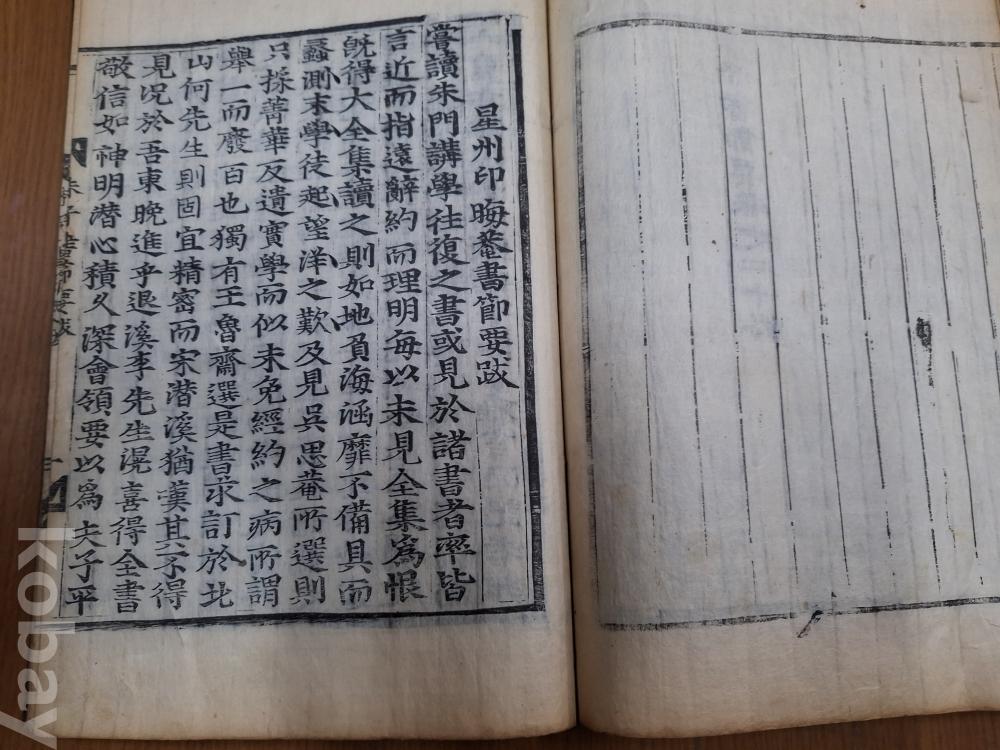 星州印晦菴書節要跋
嘗讀朱門講學往復之書或見於諸書者率皆
言近而指遠辭約而理明每以未見全集爲恨
旣得大全集讀之則如地負海涵靡不備具而
蠡測末學徒起望洋之歎及見吳思菴所選則
只採菁華反遺實學而似未免經約之病所謂
舉一而廢百也獨有王魯齋選是書求訂於北
山何先生則固宜精密而宋潛溪猶嘆其不得
見况於吾東晩進乎退溪李先生滉喜得全書
敬信如神明潛心積久深會領要以爲夫子平
朱子書節要跋
一
kobay